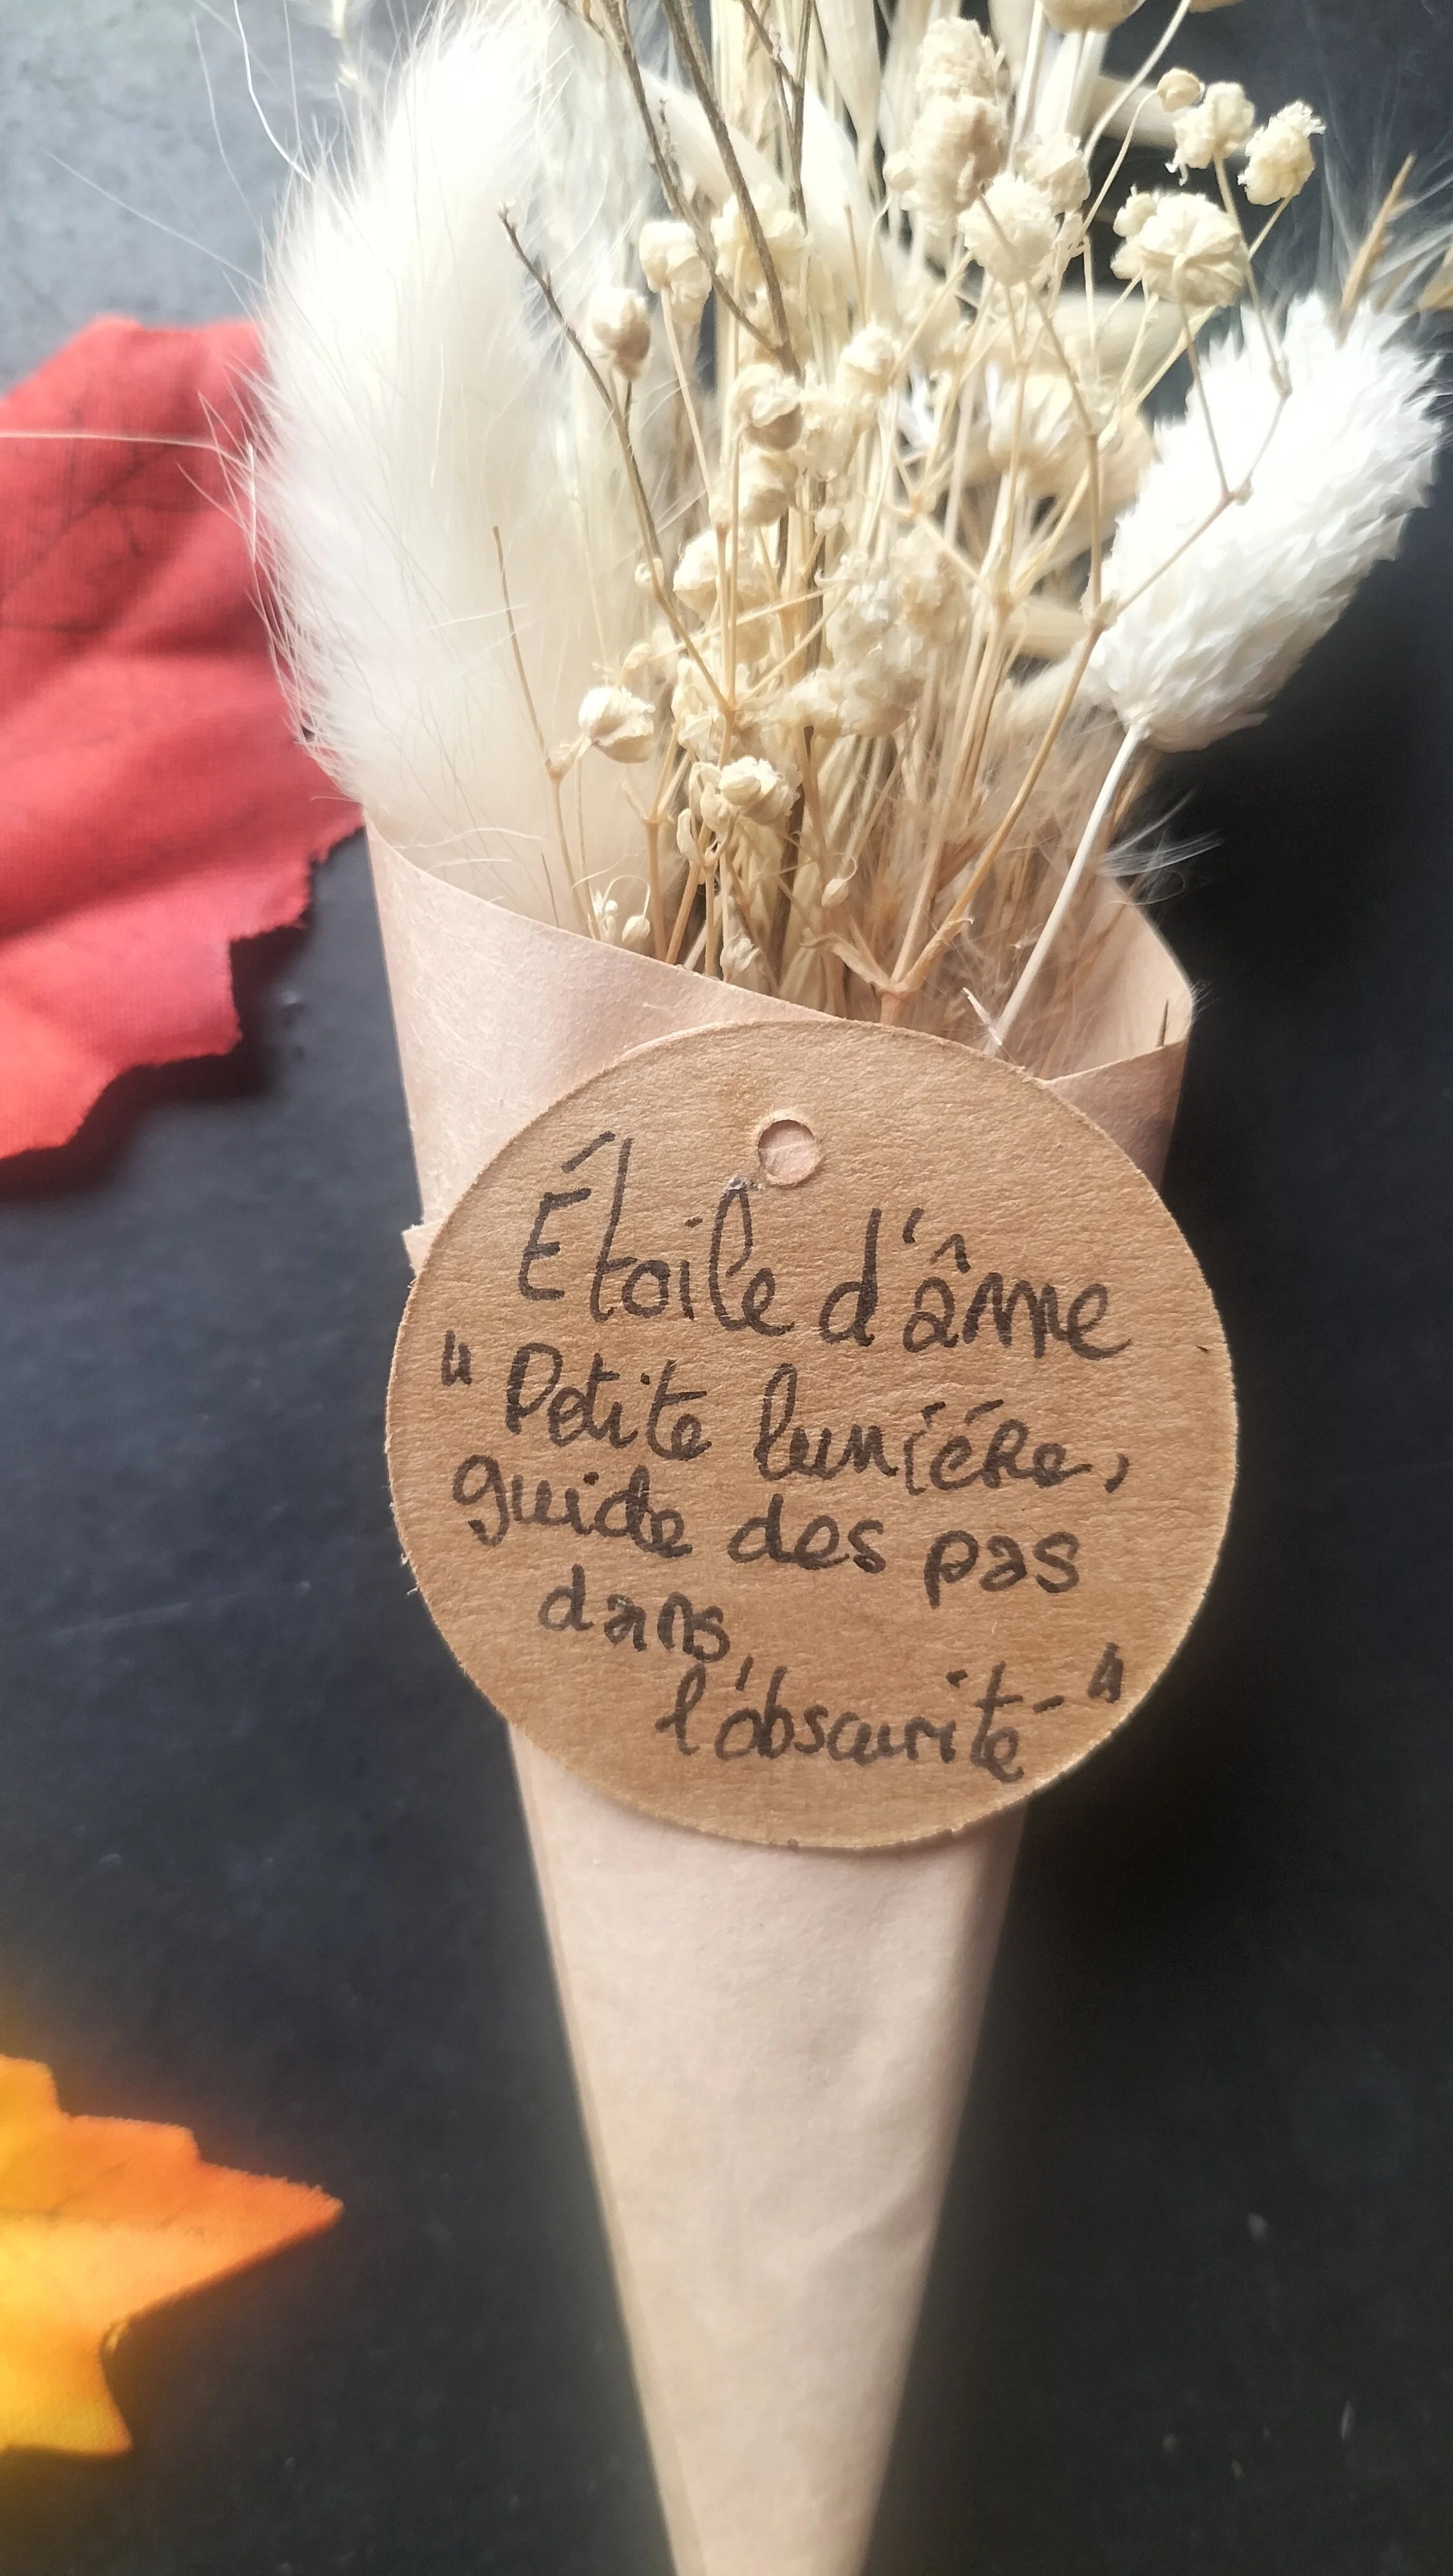 Étoile d'âme
"Petite lumière,
guide des pas
dans
l'obscurité-"